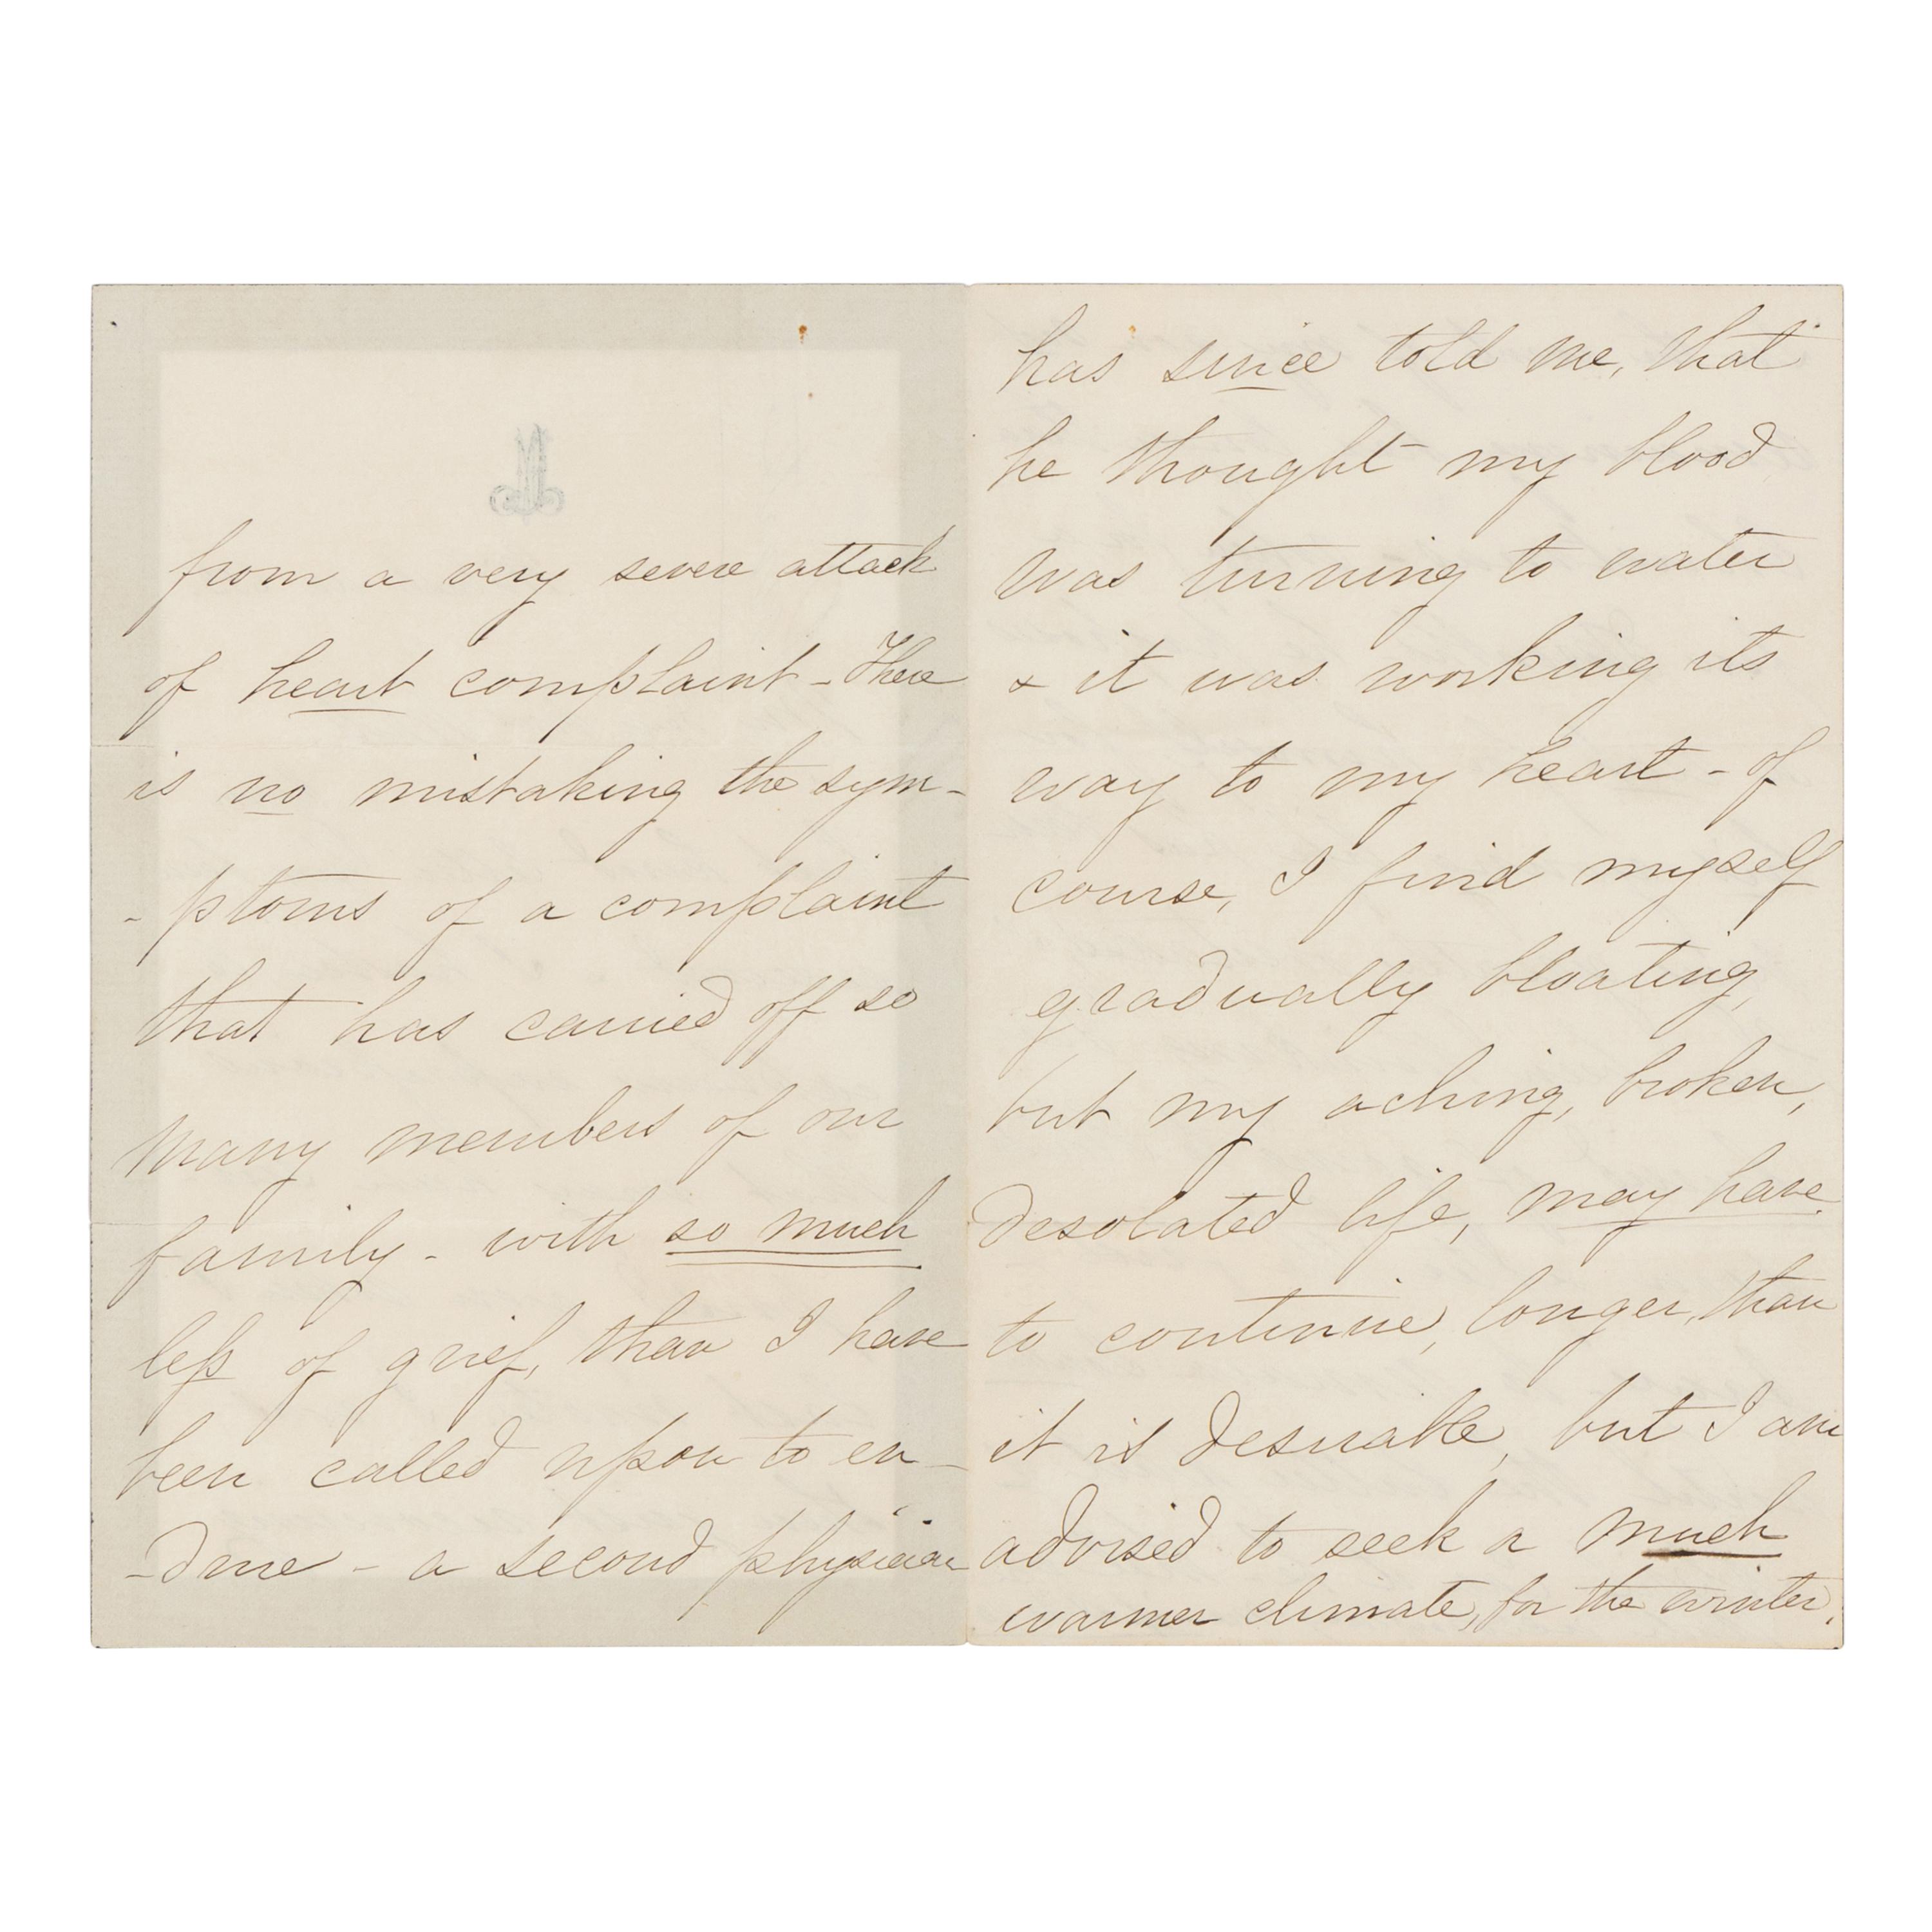 from a very severe attack
of heart complaint - There
is no mistaking the sym-
-ptoms of a complaint
that has carried off so
many members of our
family - with so much
less of grief, than I have
been called upon to en-
-dure - a second physician
has since told me, that
he thought my blood
was turning to water
& it was working its
way to my heart - of
course, I find myself
gradually bloating,
but my aching, broken,
desolated life, may have
to continue, longer, than
it is desirable, but I am
advised to seek a much
warmer climate, for the winter,